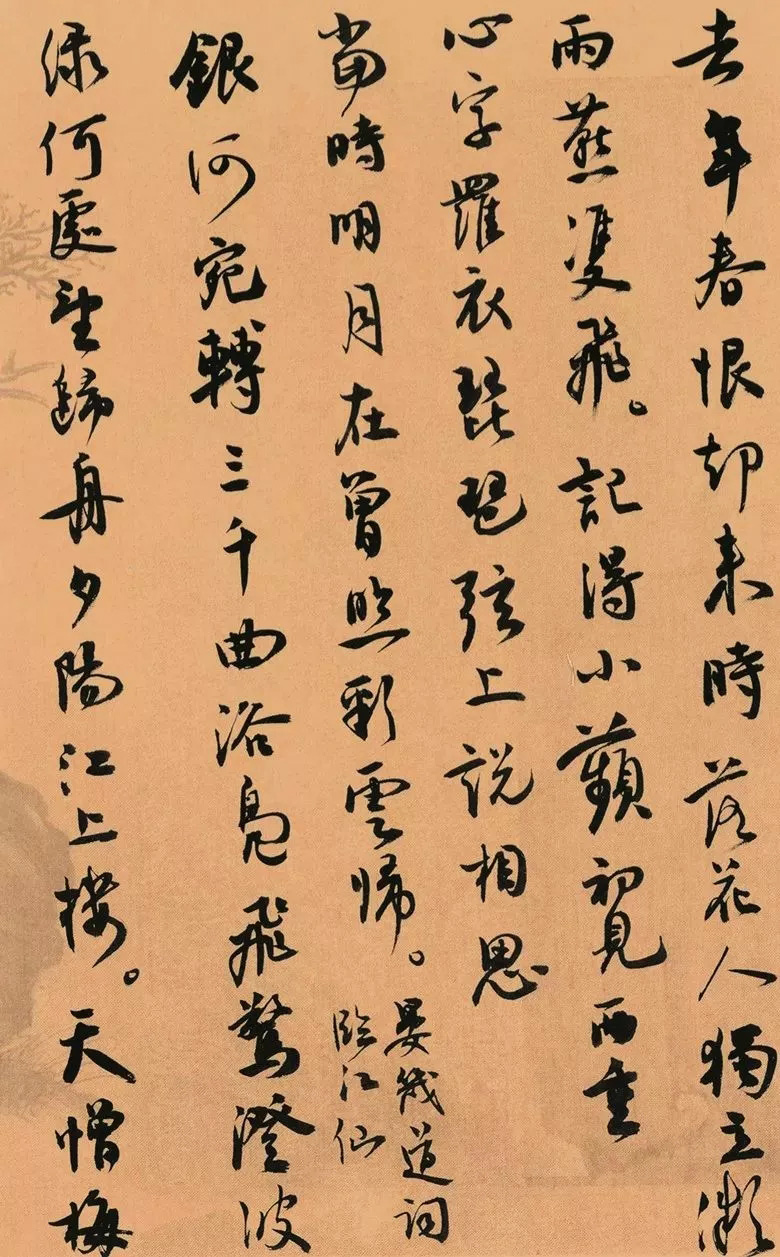 去年春恨却来時落花人獨立微
雨燕雙飛。記得小蘋初見兩重
心字羅衣琵琶弦上説相思
當時明月在曾照彩雲帰。
晏幾道詞
臨江仙
銀河宛轉三千曲浴鳧飛鷺澄波
緑何處望歸舟夕陽江上楼。天憎梅